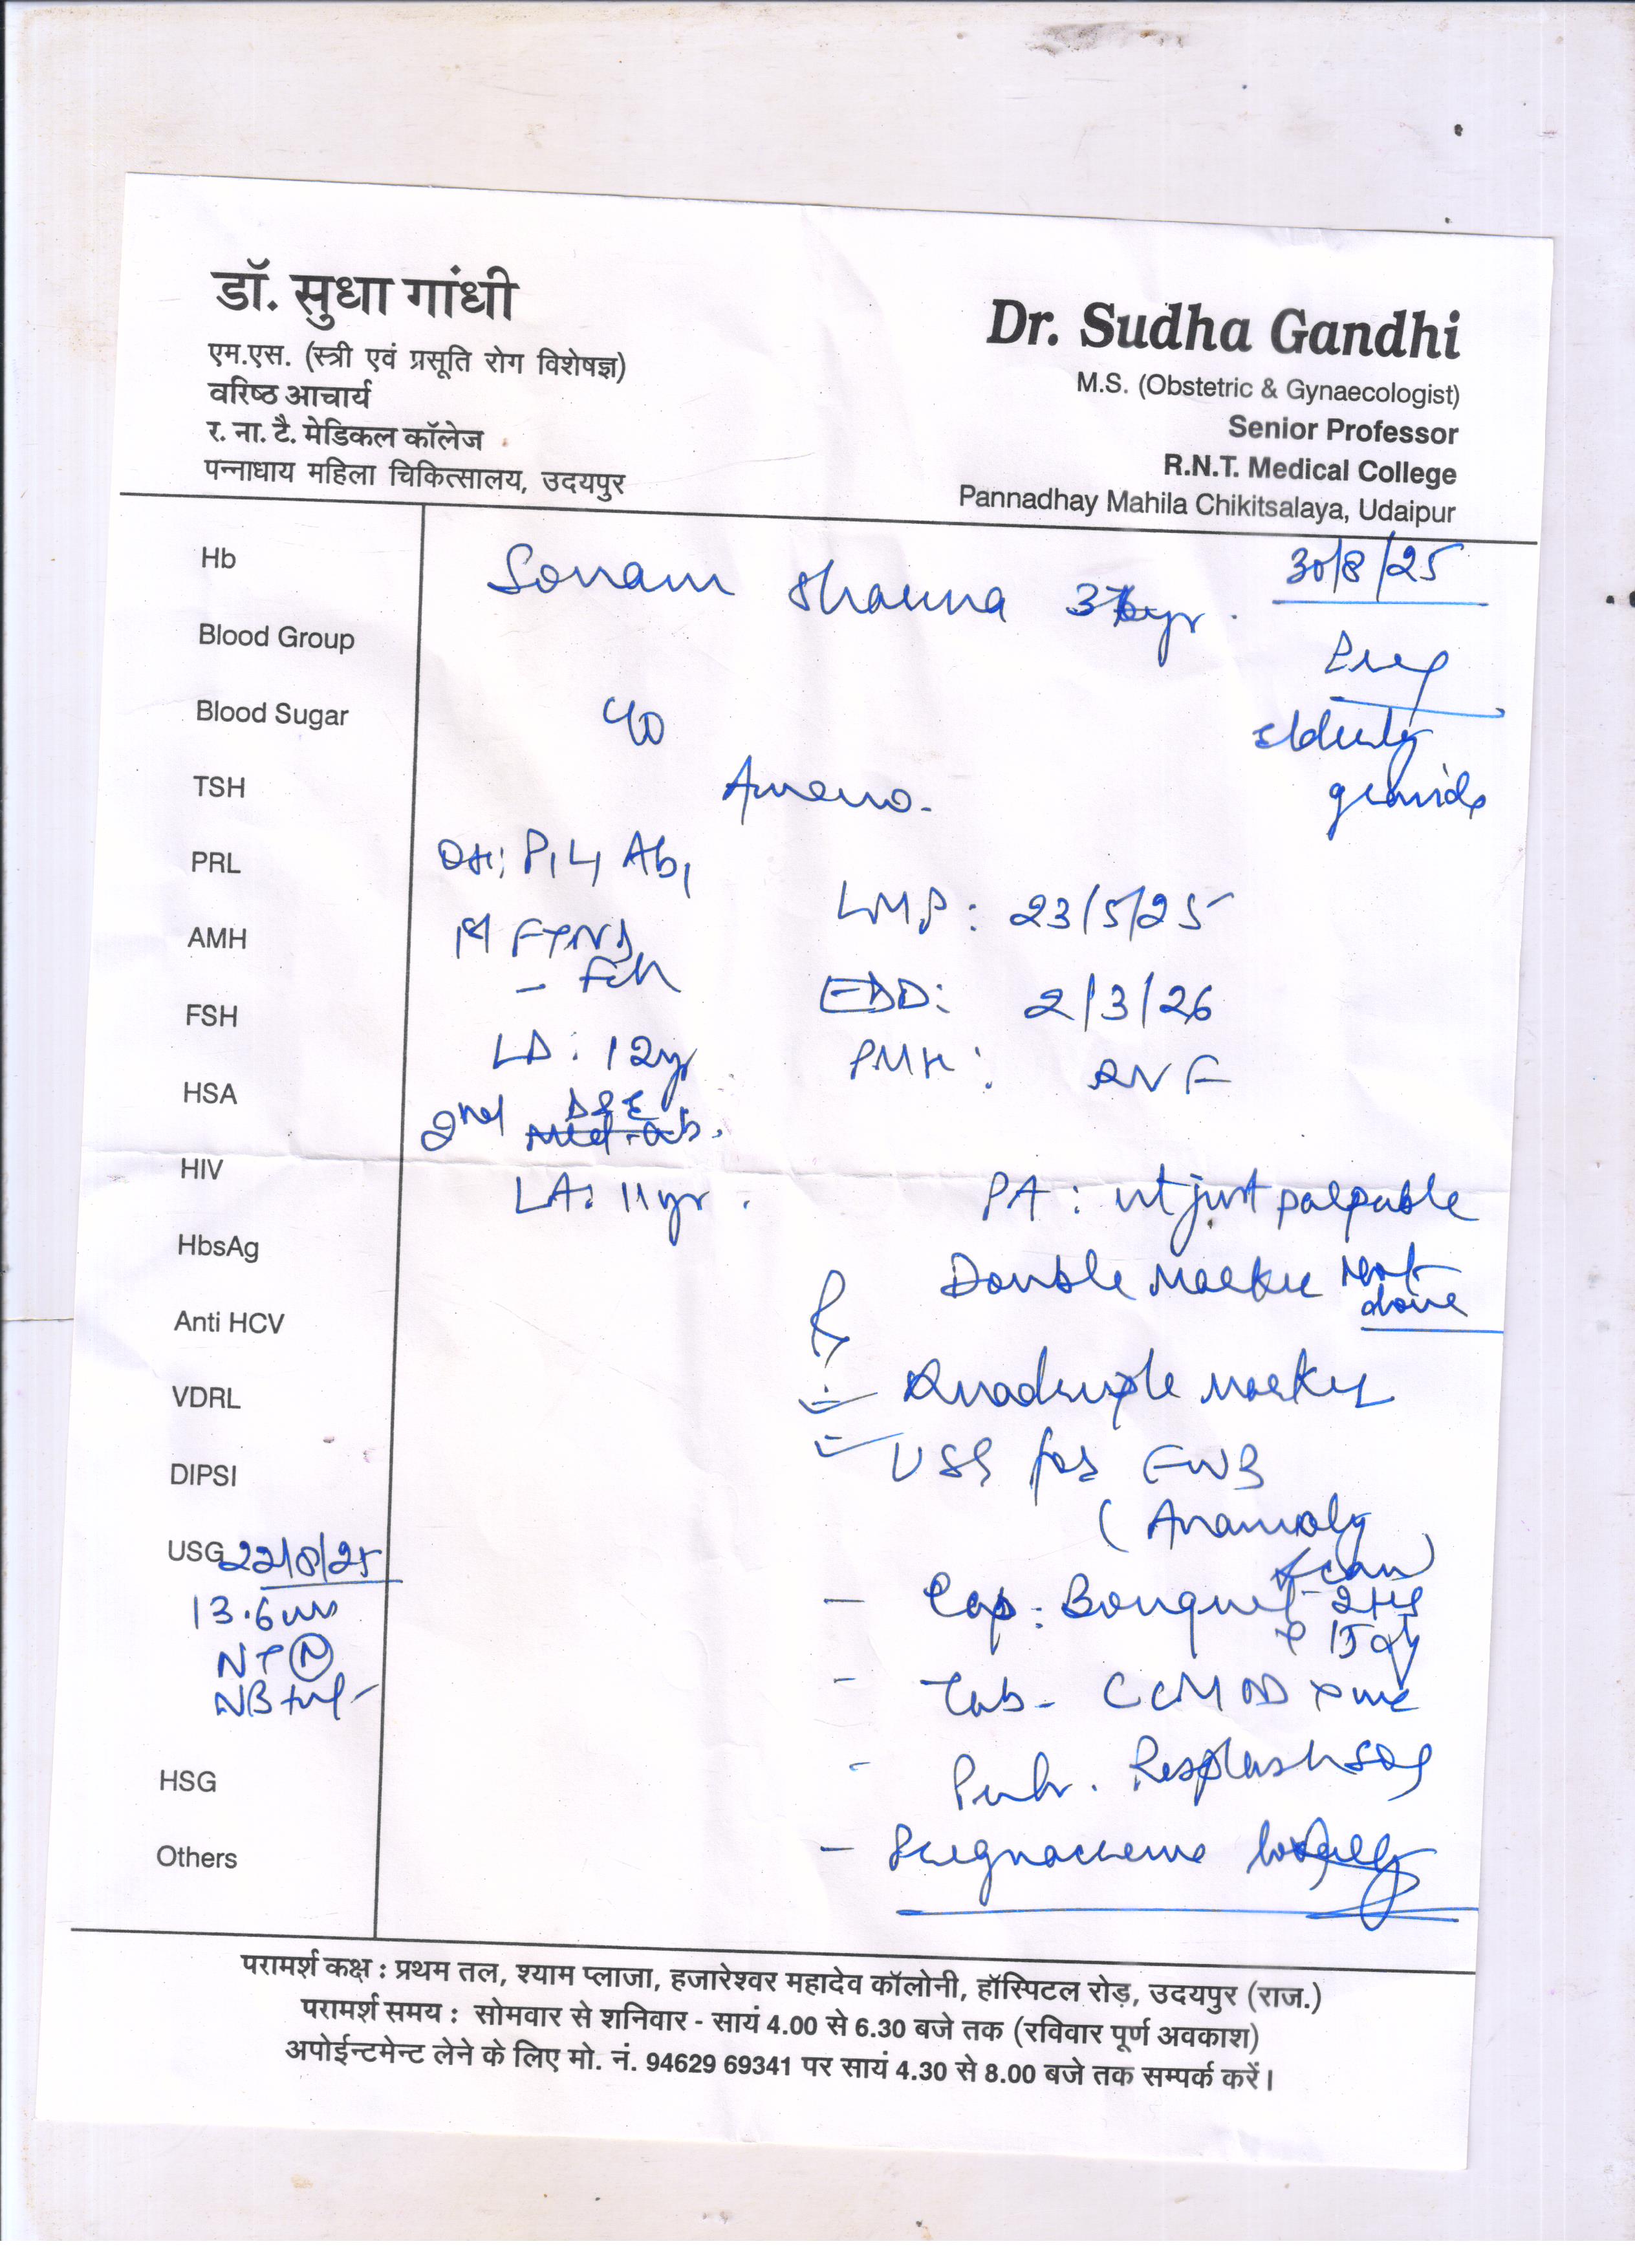 डॉ. सुधा गांधी
एम.एस. (स्त्री एवं प्रसूति रोग विशेषज्ञ)
वरिष्ठ आचार्य
र. ना. टै. मेडिकल कॉलेज
पन्नाधाय महिला चिकित्सालय, उदयपुर
Dr. Sudha Gandhi
M.S. (Obstetric & Gynaecologist)
Senior Professor
R.N.T. Medical College
Pannadhay Mahila Chikitsalaya, Udaipur
30/8/25
Sonam Sharma yr.
Preg
elderly
gravida
c/o
Ameno.
OH: P1L1 Ab1
1st FTND
- Fch
LD: 12yr
2nd D&E
LA: 11yr.
LMP: 23/5/25
EDD: 2/3/26
PMH:
PA: ut just palpable
Double Marker not
done
Rx
- Quadruple marker
- USG for FWB
(Anamoly
scan)
- Cap: Bouquet
- Tab-
-
-
Hb
Blood Group
Blood Sugar
TSH
PRL
AMH
FSH
HSA
HIV
HbsAg
Anti HCV
VDRL
DIPSI
USG 22/8/25
13.6
NT (N)
NB
HSG
Others
परामर्श कक्ष : प्रथम तल, श्याम प्लाजा, हजारेश्वर महादेव कॉलोनी, हॉस्पिटल रोड़, उदयपुर (राज.)
परामर्श समय : सोमवार से शनिवार - सायं 4.00 से 6.30 बजे तक (रविवार पूर्ण अवकाश)
अपोईन्टमेन्ट लेने के लिए मो. नं. 94629 69341 पर सायं 4.30 से 8.00 बजे तक सम्पर्क करें।